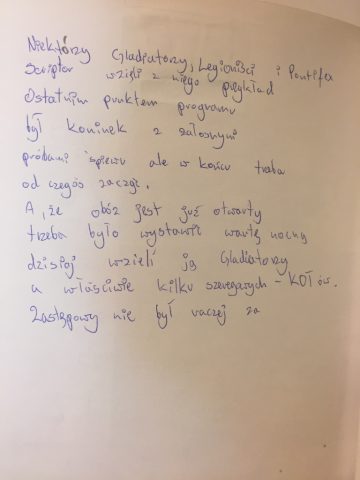 Niektórzy Gladiatorzy, Legioniści i Pontifex
Scriptor wzięli z niego przykład
Ostatnim punktem programu
był kominek z żałosnymi
próbami śpiewu ale w końcu trzeba
od czegoś zacząć.
A, że obóz jest już otwarty
trzeba było wystawić wartę nocną
dzisiaj wzieli ją Gladiatorzy
a właściwie kilku szeregowych - KOT ów.
Zastępowy nie był raczej za